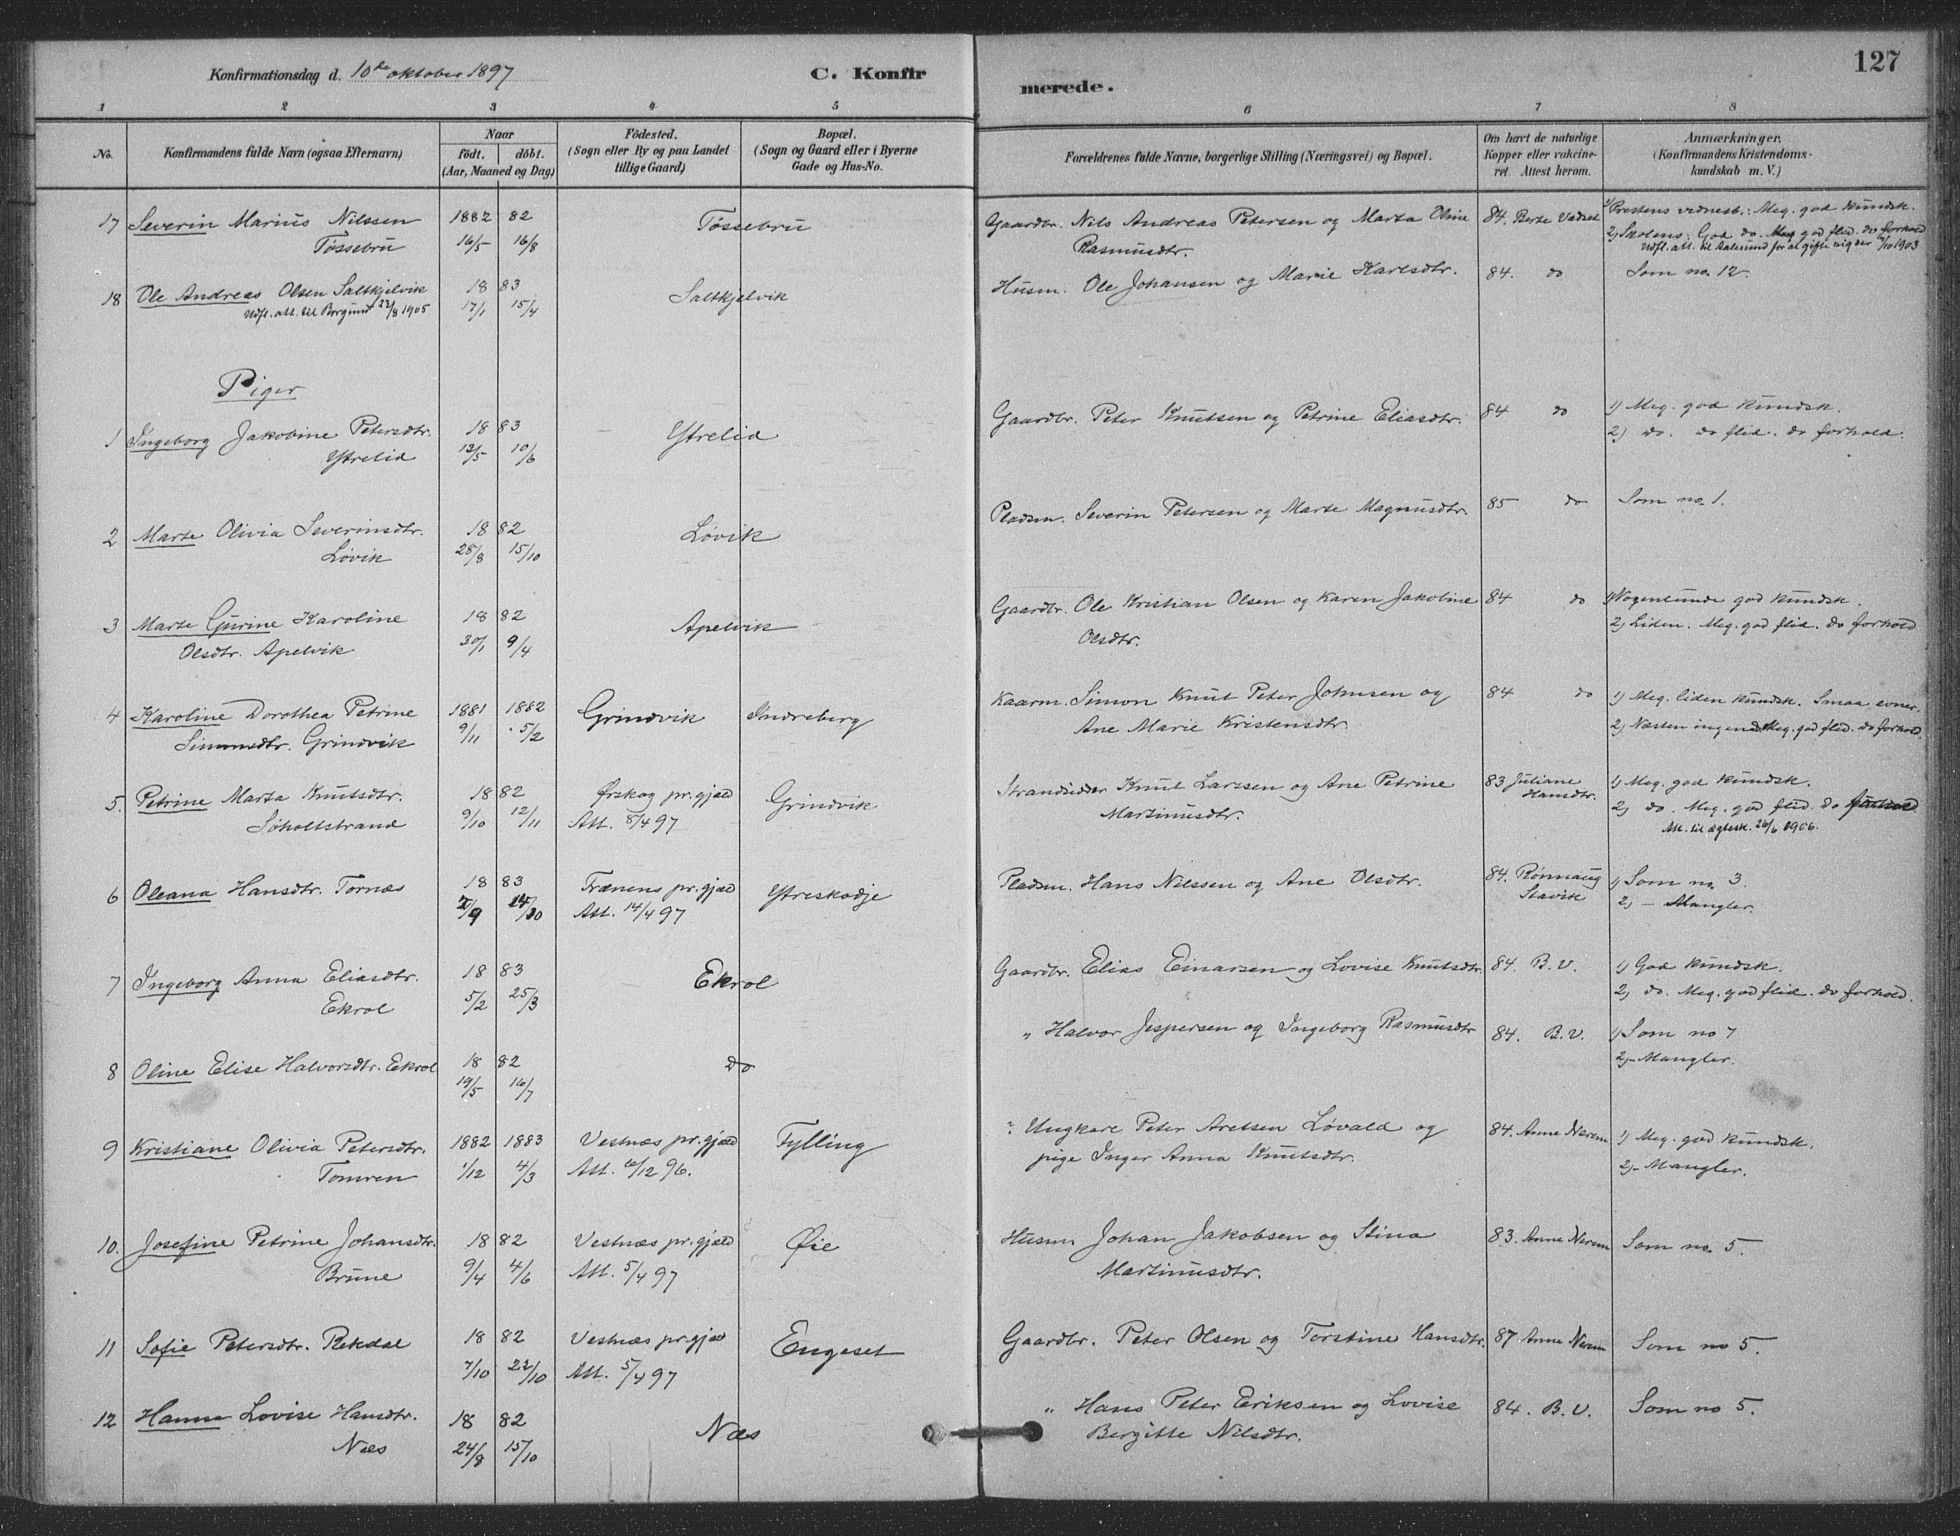 127
Konfirmationsdag d. 10de oktober 1897
C. Konfir
merede.
1 2 3 4 5 6 7 8
No.
Konfirmandens fulde Navn (ogsaa Efternavn)
Naar
födt. döbt.
(Aar, Maaned og Dag)
Födested.
(Sogn eller By og paa Landet
tillige Gaard)
Bopæl.
(Sogn og Gaard eller i Byerne
Gade og Hus-No.
Forældrenes fulde Navne, borgerlige Stilling (Næringsvei) og Bopæl.
Om havt de naturlige
Kopper eller vakcine-
ret. Attest herom.
Anmærkninger.
(Konfirmandens Kristendoms-
kundskab m. V.)
17 Severin Marius Nilssen 1882 82 Tøssebru Gaardbr. Nils Andreas Petersen og Marta Oline 84. Berte Vadset 1) Prestens vidnesb.: Meg. god kundsk.
Tøssebru 16/5 16/8 Rasmusdtr. 2) Skolens: God do. Meg god flid. do forhold
Udfl. att. til Aalesund for at gifte sig der /10 1903
18 Ole Andreas Olsen Saltkjelvik 18 83 Saltkjelvik Husm. Ole Johansen og Marie Karlsdtr. 84. do Som no. 12
Udfl. att. til Borgund 22/8 1905 17/1 15/4
Piger
1 Ingeborg Jakobine Petersdtr. 18 83 Ystrelid Gaardbr. Peter Knutsen og Petrine Eliasdtr. 84 do 1) Meg. god kundsk.
Ystrelid 13/5 10/6 2) do. do flid. do forhold.
2 Marte Olivia Severinsdtr. 18 82 Løvik Pladsm. Severin Petersen og Marte Magnusdtr. 85 do Som no. 1.
Løvik 28/8 15/10
3 Marte Gurine Karoline 18 82 Apelvik Gaardbr. Ole Kristian Olsen og Karen Jakobine 84 do 1) Nogenlunde god kundsk.
Olsdtr. Apelvik 30/1 9/4 Olsdtr. 2) Liden. Meg. god flid. do forhold
4 Karoline Dorothea Petrine 1881 1882 Grindvik Indreberg Kaarm. Simon Knut Peter Johnsen og 84 do 1) Meg. liden kundsk. Smaa evner.
Simonsdtr. Grindvik 9/11 5/2 Ane Marie Kristensdtr. 2) Næsten ingen. Meg. god flid. do forhold.
5. Petrine Marta Knutsdtr. 18 82 Ørskog pr.gjæld Grindvik Strandsidder Knut Larssen og Ane Petrine 83 Juliane Hansdtr. 1) Meg. god kundsk.
Søholtstrand 9/10 12/11 Att. 8/4 97 Martinusdtr. 2) do. Meg. god flid. do forhold
Att. til ægtesk. 26/6 1906.
6 Oleana Hansdtr. Tornæs 18 83 Frænens pr.gjæld Ystreskodje Pladsm. Hans Nilssen og Ane Olsdtr. 84. Rønnaug Slavik 1) Som no 3.
Att. 14/4 97 2) - Mangler.
7 Ingeborg Anna Eliasdtr. 18 83 Ekrol Gaardbr. Elias Einarsen og Lovise Knutsdtr. 84. B.V. 1) God kundsk.
Ekrol 5/2 25/3 2) do. Meg. god flid. do forhold.
8 Oline Elise Halvorsdtr. Ekrol 18 82 do " Halvor Jespersen og Ingeborg Rasmusdtr 84. B.V. 1) Som no 7
19/5 16/7 2) - Mangler.
9 Kristiane Olivia Petersdtr. 1882 1883 Vestnæs pr.gjæld Fylling Ungkare Peter Aretsen Løvald og 84. Anne Nerem 1) Meg. god kundsk.
Tomren 1/12 4/3 Att. /12 96. pige Inger Anna Knutsdtr. 2) - Mangler.
10. Josefine Petrine Johansdtr. 18 82 Vestnæs pr.gjæld Øie Husm Johan Jakobsen og Stina 83. Anne Nerem Som no. 5.
Brune 9/4 4/6 Att. 5/4 97 Martinusdtr.
11 Sofie Petersdtr. Rekdal 18 82 Vestnæs pr.gjæld Engeset Gaardbr. Peter Olsen og Torstine Hansdtr. 87 Anne Nerem Som no 5.
7/10 22/10 Att. 5/4 97
12 Hanna Lovise Hansdtr. 18 82 Næs " Hans Peter Eriksen og Lovise 84. B.V. Som no 5.
Næs 24/8 15/10 Bergitte Nilsdtr.